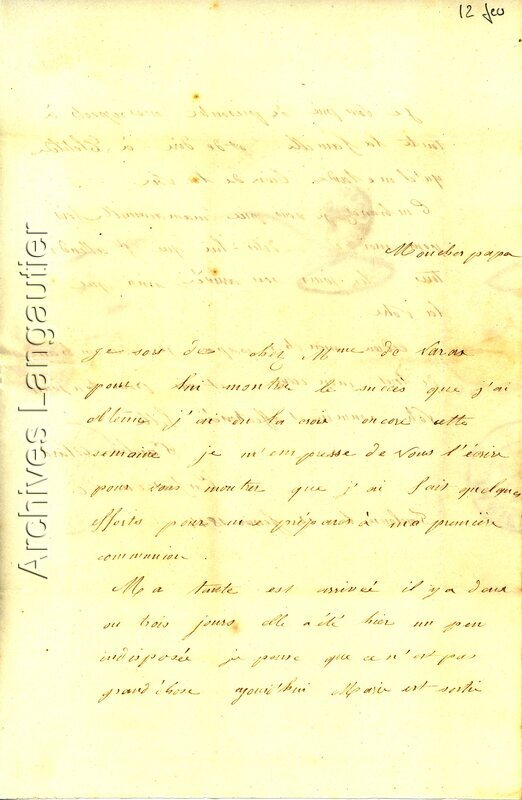 12 fev
Mon cher papa
Je sort de chez Mme de Varax
pour lui montre le succès que j'ai
obtenu j'ai eu la croix encore cette
semaine je m'empresse de vous l'écrire
pour vous montrer que j'ai fait quelques
efforts pour me préparer à ma première
communion.
Ma tante est arrivée il y a deux
ou trois jours elle a été hier un peu
indisposée je pense que ce n'est pas
grand'chose ajourd'hui Marie est sortie
Archives Langautier